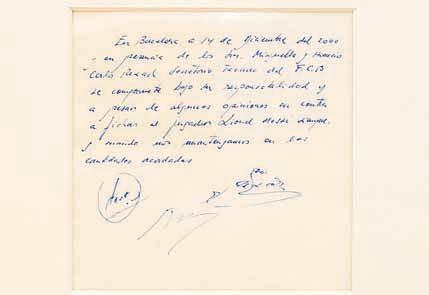 En Barcelona a 14 de Diciembre del 2000
en presencia de los Srs. Minguella y Horacio
Carles Rexach Secretario Tecnico del F.C.B
se compromete bajo su responsabilidad y
a pesar de algunas opiniones en contra
a fichar al jugador Lionel Messi siempre
y cuando nos mantengamos en las
cantidades acordadas